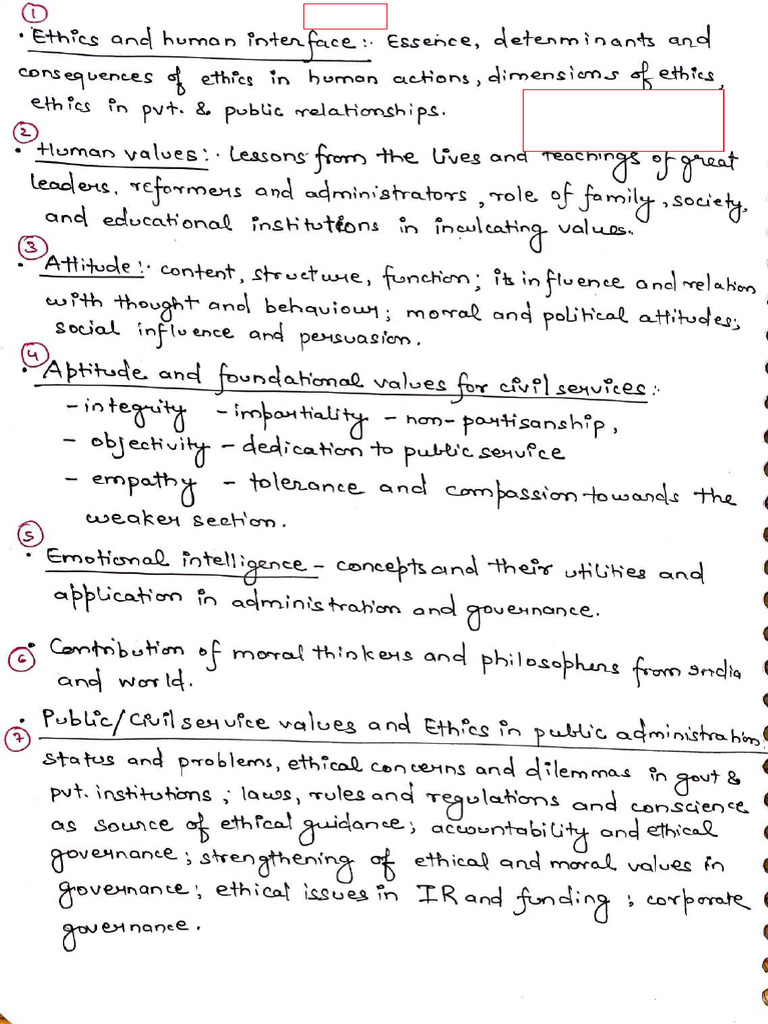 ①
• Ethics and human interface:- Essence, determinants and
consequences of ethics in human actions, dimensions of ethics,
ethics in pvt. & public relationships.
②
• Human values:- Lessons from the lives and teachings of great
leaders, reformers and administrators, role of family, society,
and educational institutions in inculcating values.
③
• Attitude:- content, structure, function; its influence and relation
with thought and behaviour; moral and political attitudes;
social influence and persuasion.
④
• Aptitude and foundational values for civil services:-
- integrity - impartiality - non-partisanship,
- objectivity - dedication to public service
- empathy - tolerance and compassion towards the
weaker section.
⑤
• Emotional intelligence - concepts and their utilities and
application in administration and governance.
⑥ • Contribution of moral thinkers and philosophers from India
and world.
⑦ • Public/Civil service values and Ethics in public administration:
status and problems, ethical concerns and dilemmas in govt &
pvt. institutions; laws, rules and regulations and conscience
as source of ethical guidance; accountability and ethical
governance; strengthening of ethical and moral values in
governance; ethical issues in IR and funding; corporate
governance.